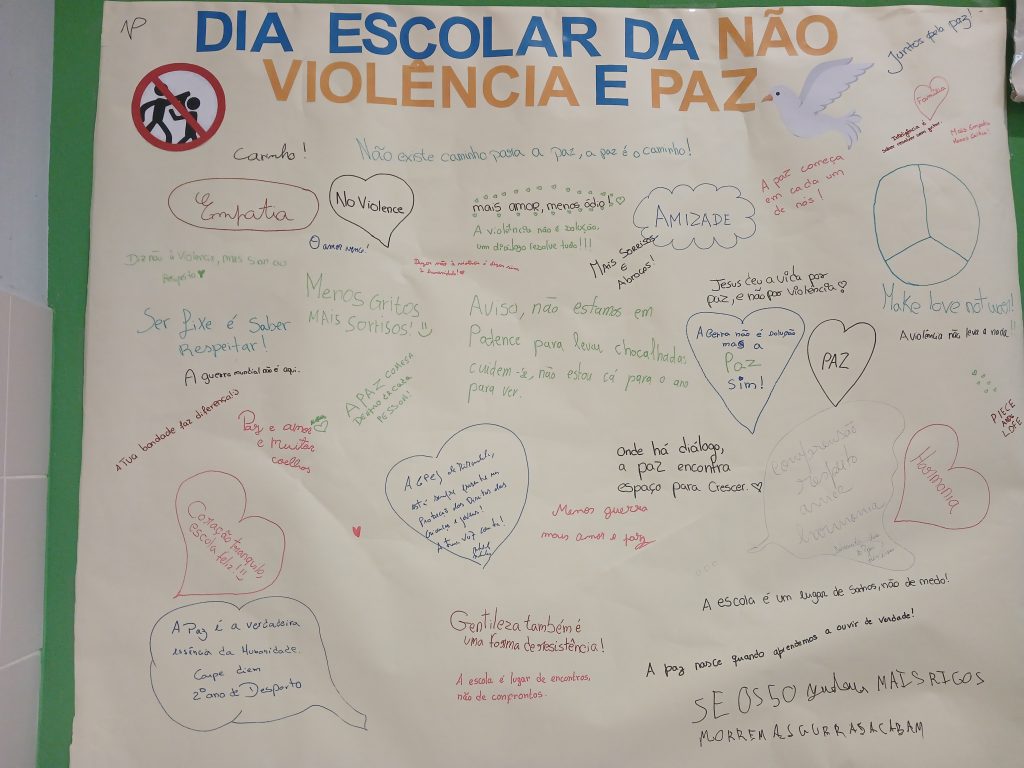 DIA ESCOLAR DA NÃO
VIOLÊNCIA E PAZ
Juntos pela paz!
Família
Mais Empatia
Menos Gritos!
Carinho!
Não existe caminho para a paz, a paz é o caminho!
A paz começa
em cada um
de nós!
Empatia
No Violence
mais amor, menos ódio!
A violência não é solução,
um diálogo resolve tudo!!!
AMIZADE
O amor vence!
MAIS SORRISOS
E
Abraços!
Diz não à violência, mas sim ao
Respeito
Menos Gritos
MAIS SORRISOS!
Jesus deu a vida por
paz, e não por violência
Make love not
A violência não leva a nada!!!
Ser fixe é Saber
Respeitar!
Aviso, não estamos em
Podence para levar chocalhadas
cuidem-se, não estou cá para o ano
para ver.
A Gerra não é solução
mas a
Paz
sim!
PAZ
A guerra mundial não é aqui.
A PAZ COMEÇA
DENTRO DE CADA
PESSOA!
A tua bondade faz diferença!
Paz e amor
e muitos
coelhos
PIECE
AND
LOFE
Onde há diálogo,
a paz encontra
espaço para Crescer.
compreensão
respeito
amor
harmonia
Harmonia
A CPCJ de
está sempre presente na
Proteção dos Direitos das
crianças e jovens!
A tua voz conta!
Menos guerra
mais amor e paz
Coração tranquilo,
escola feliz!!
A escola é um lugar de sonhos, não de medo!
A Paz é a verdadeira
essência da Humanidade.
Carpe diem
2º ano de Desporto
Gentileza também é
uma forma de resistência!
A paz nasce quando aprendemos a ouvir de verdade!
A escola é lugar de encontros,
não de confrontos.
SE OS 50 MAIS RICOS
MORREM AS GURRAS ACABAM